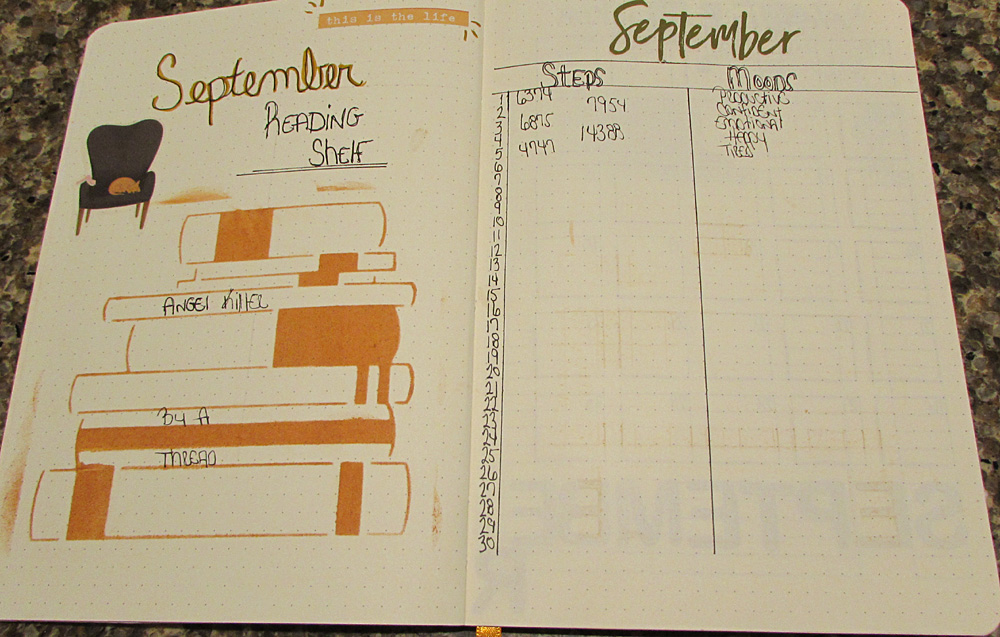 this is the life
September
READING
SHELF
ANGEL KILLER
BY A
THREAD
September
STEPS MOODS
1 6374 PRODUCTIVE
2 7954 CONFIDENT
3 6875 EMOTIONAL
4 14388 HAPPY
5 4747 TIRED
6
7
8
9
10
11
12
13
14
15
16
17
18
19
20
21
22
23
24
25
26
27
28
29
30
SEPTEMBE
R